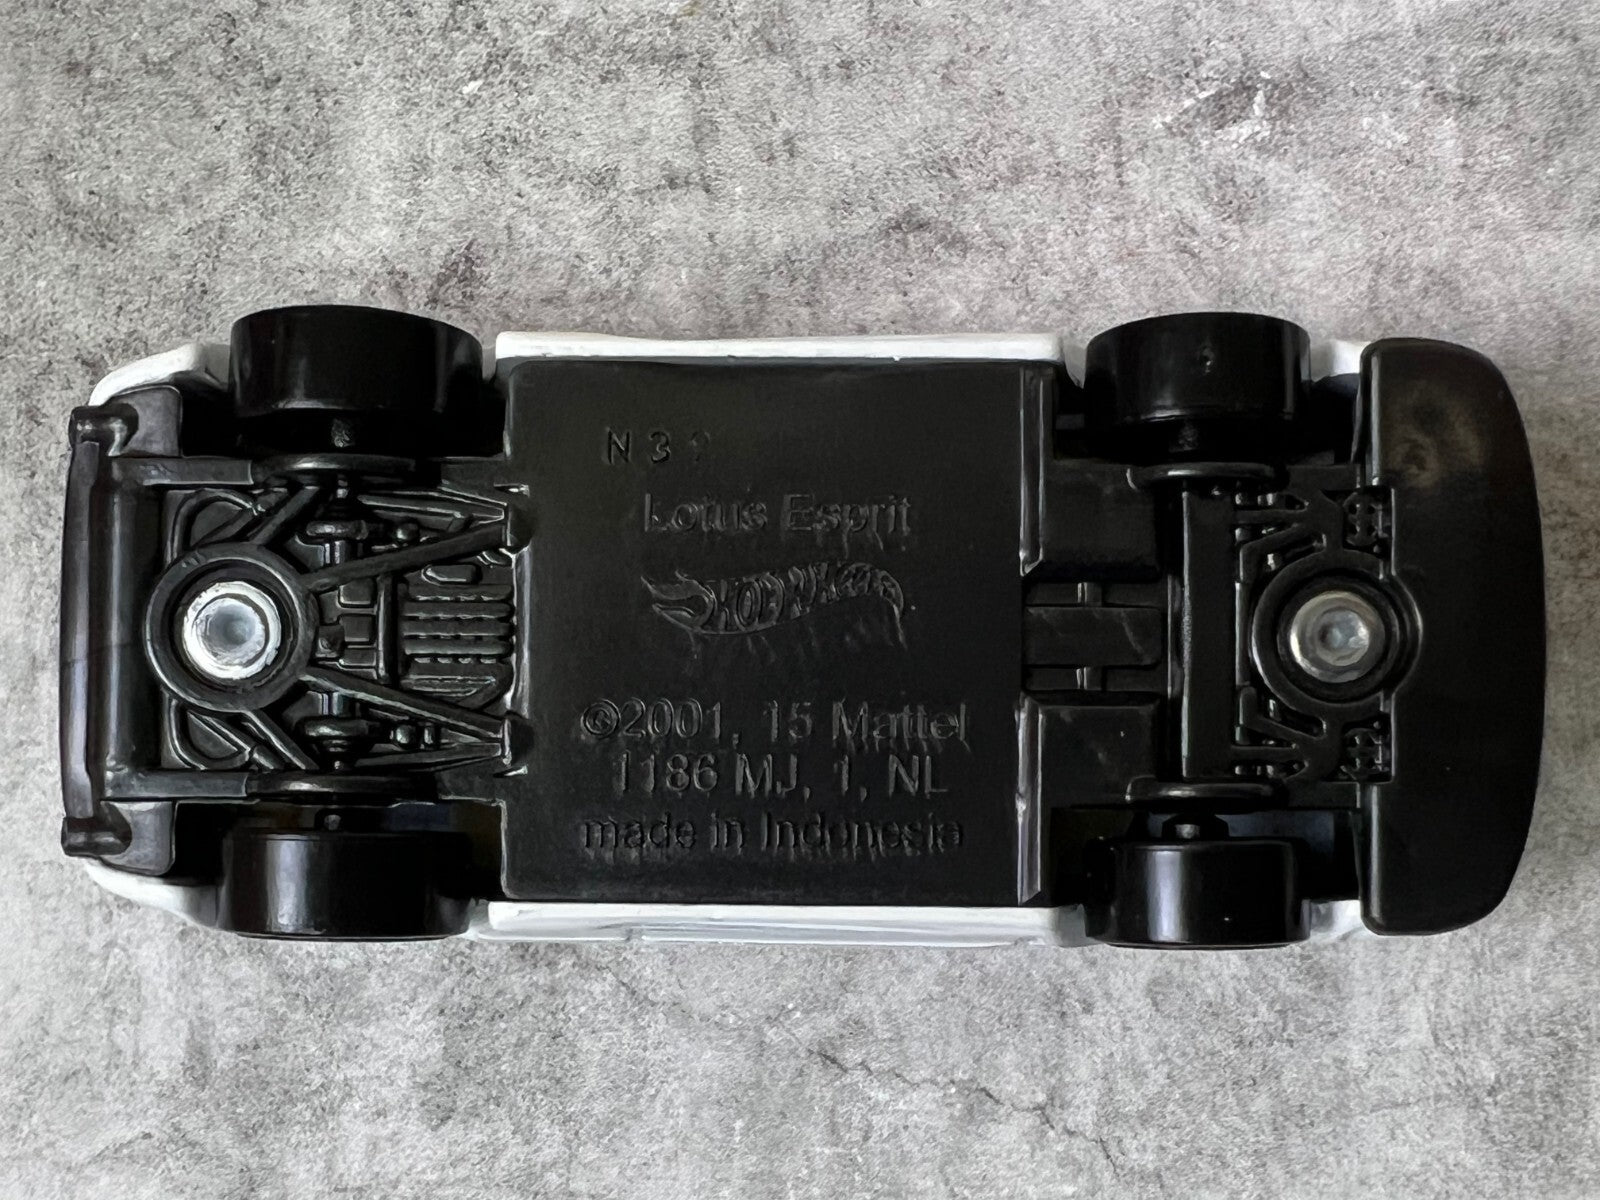 N 3
Lotus Esprit
HOT WHEELS
©2001, 15 Mattel
1186 MJ, 1, NL
made in Indonesia